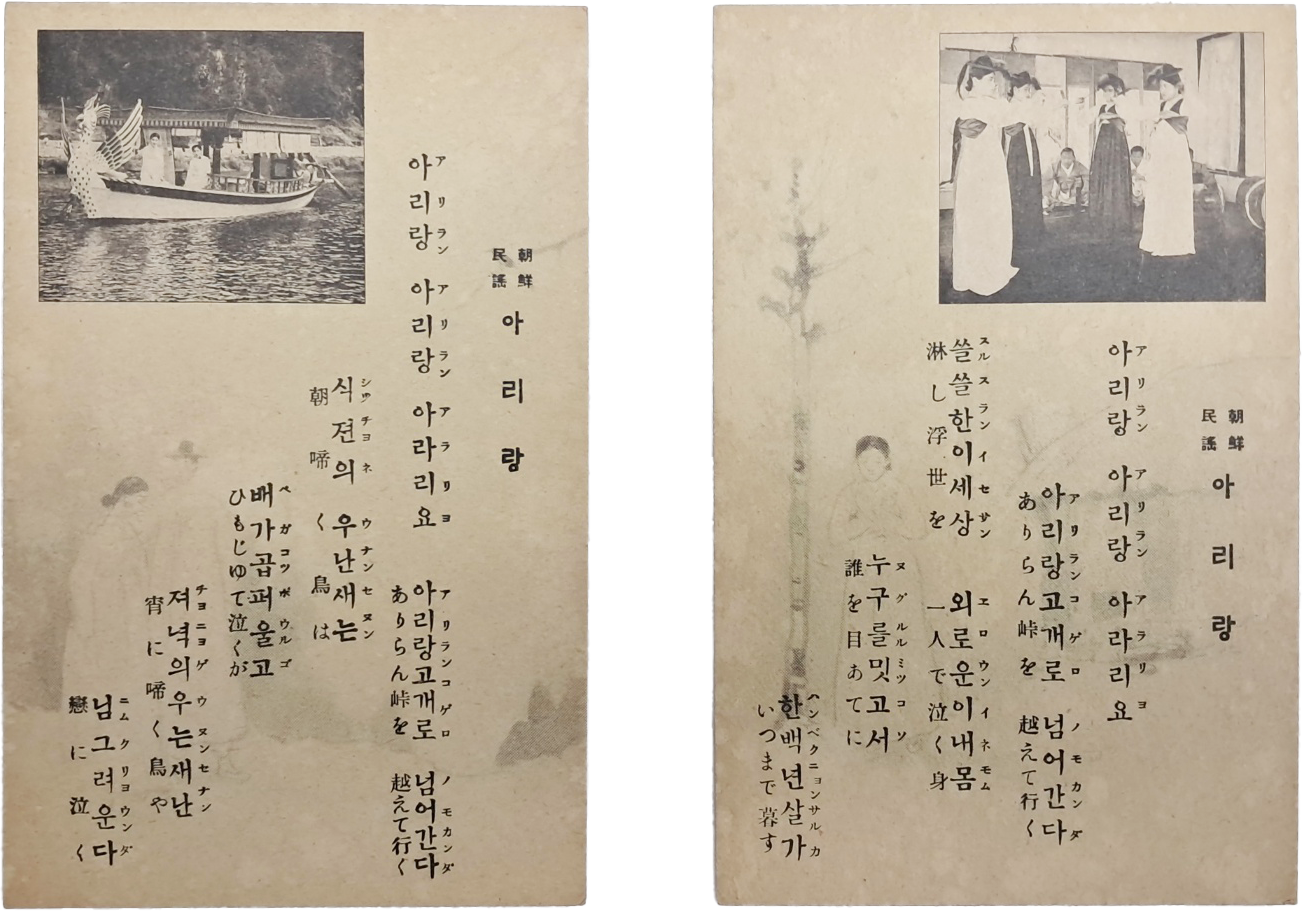 朝鮮
民謠
아리랑
アリラン アリラン アラリヨ
아리랑 아리랑 아라리요
アリランコゲロ ノモカンダ
아리랑고개로 넘어간다
ありらん峠を 越えて行く
シツチヨネ ウナンセヌン
식젼의 우난새는
朝啼く鳥は
ペガコツポウルゴ
배가곱퍼울고
ひもじゆて泣くが
チヨニヨゲウヌンセナン
져녁의우는새난
宵に啼く鳥や
ニムクリヨウンダ
님그려운다
戀に泣く
朝鮮
民謠
아리랑
アリラン アリラン アラリヨ
아리랑 아리랑 아라리요
アリランコゲロ ノモカンダ
아리랑고개로 넘어간다
ありらん峠を 越えて行く
スルスランイセサン エロウンイネモム
쓸쓸한이세상 외로운이내몸
淋し浮世を 一人で泣く身
ヌグルルミツコソ
누구를밋고서
誰を目あてに
ハンベクニヨンサルカ
한백년살가
いつまで暮す